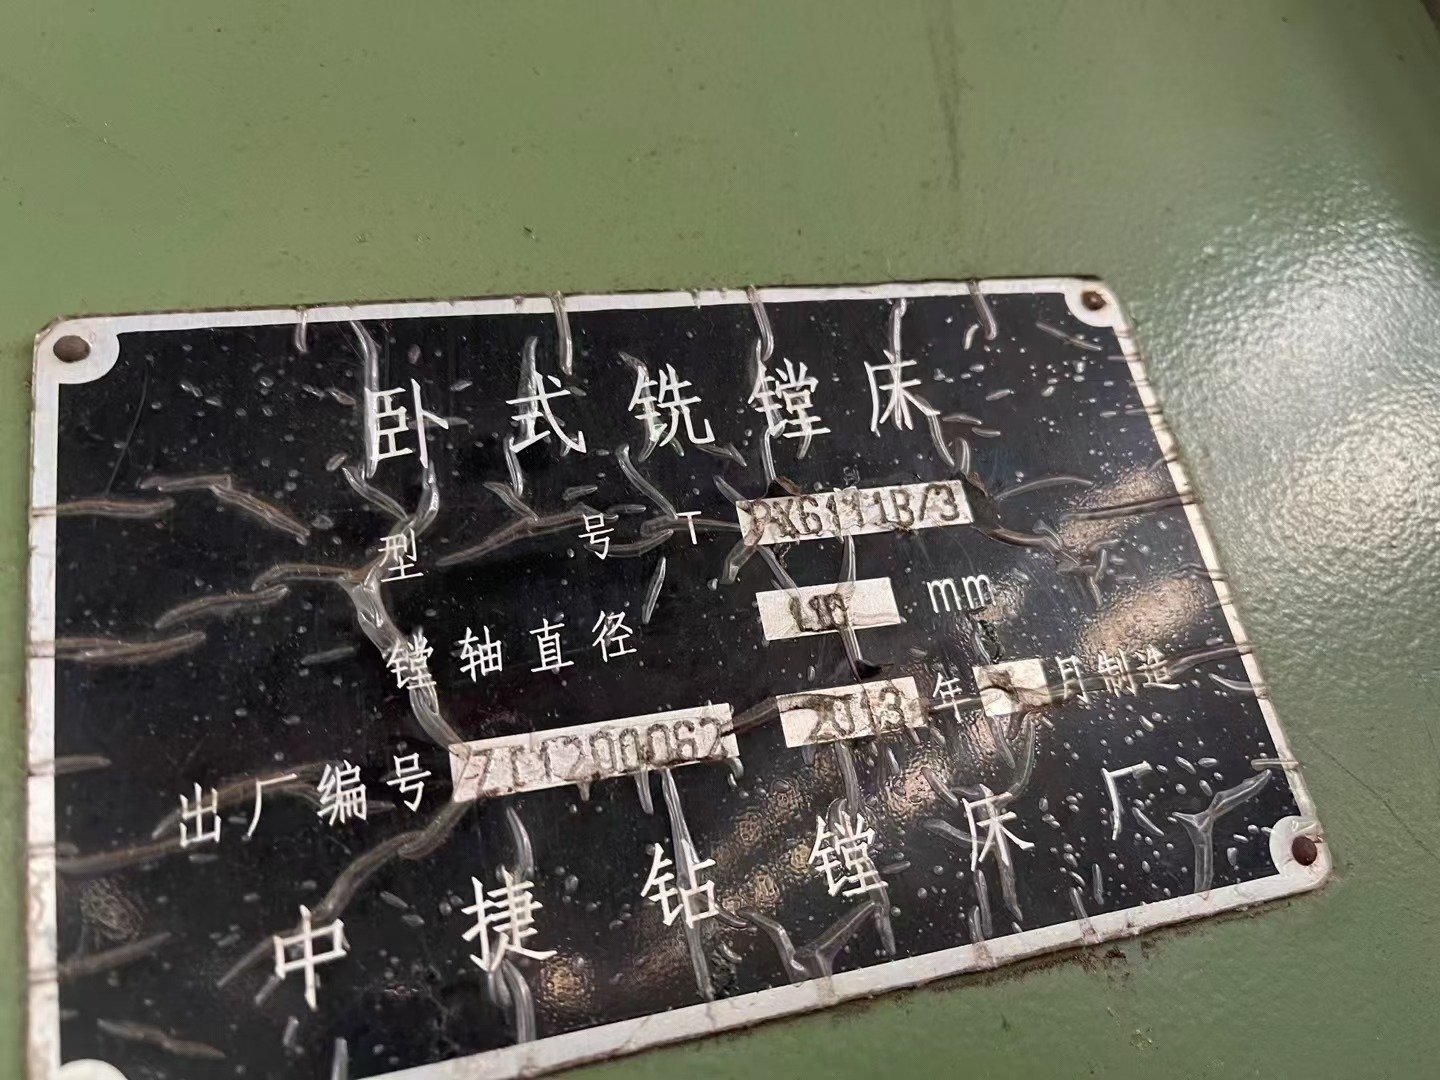 卧式铣镗床
型号 T PX6111B/3
镗轴直径 110 mm
出厂编号 2013年 月制造
中捷钻镗床厂